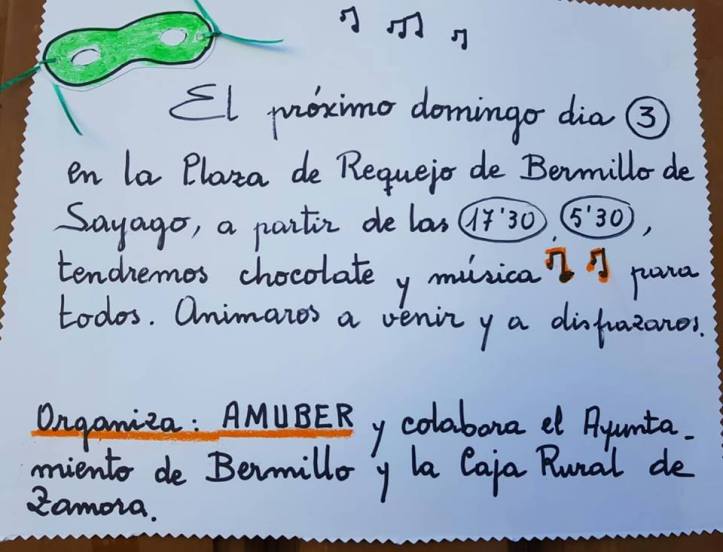 El próximo domingo dia 3
en la Plaza de Requejo de Bermillo de
Sayago, a partir de las 17'30, 5'30,
tendremos chocolate y música para
todos. Animaros a venir y a disfrazaros.
Organiza: AMUBER y colabora el Ayunta-
miento de Bermillo y la Caja Rural de
Zamora.